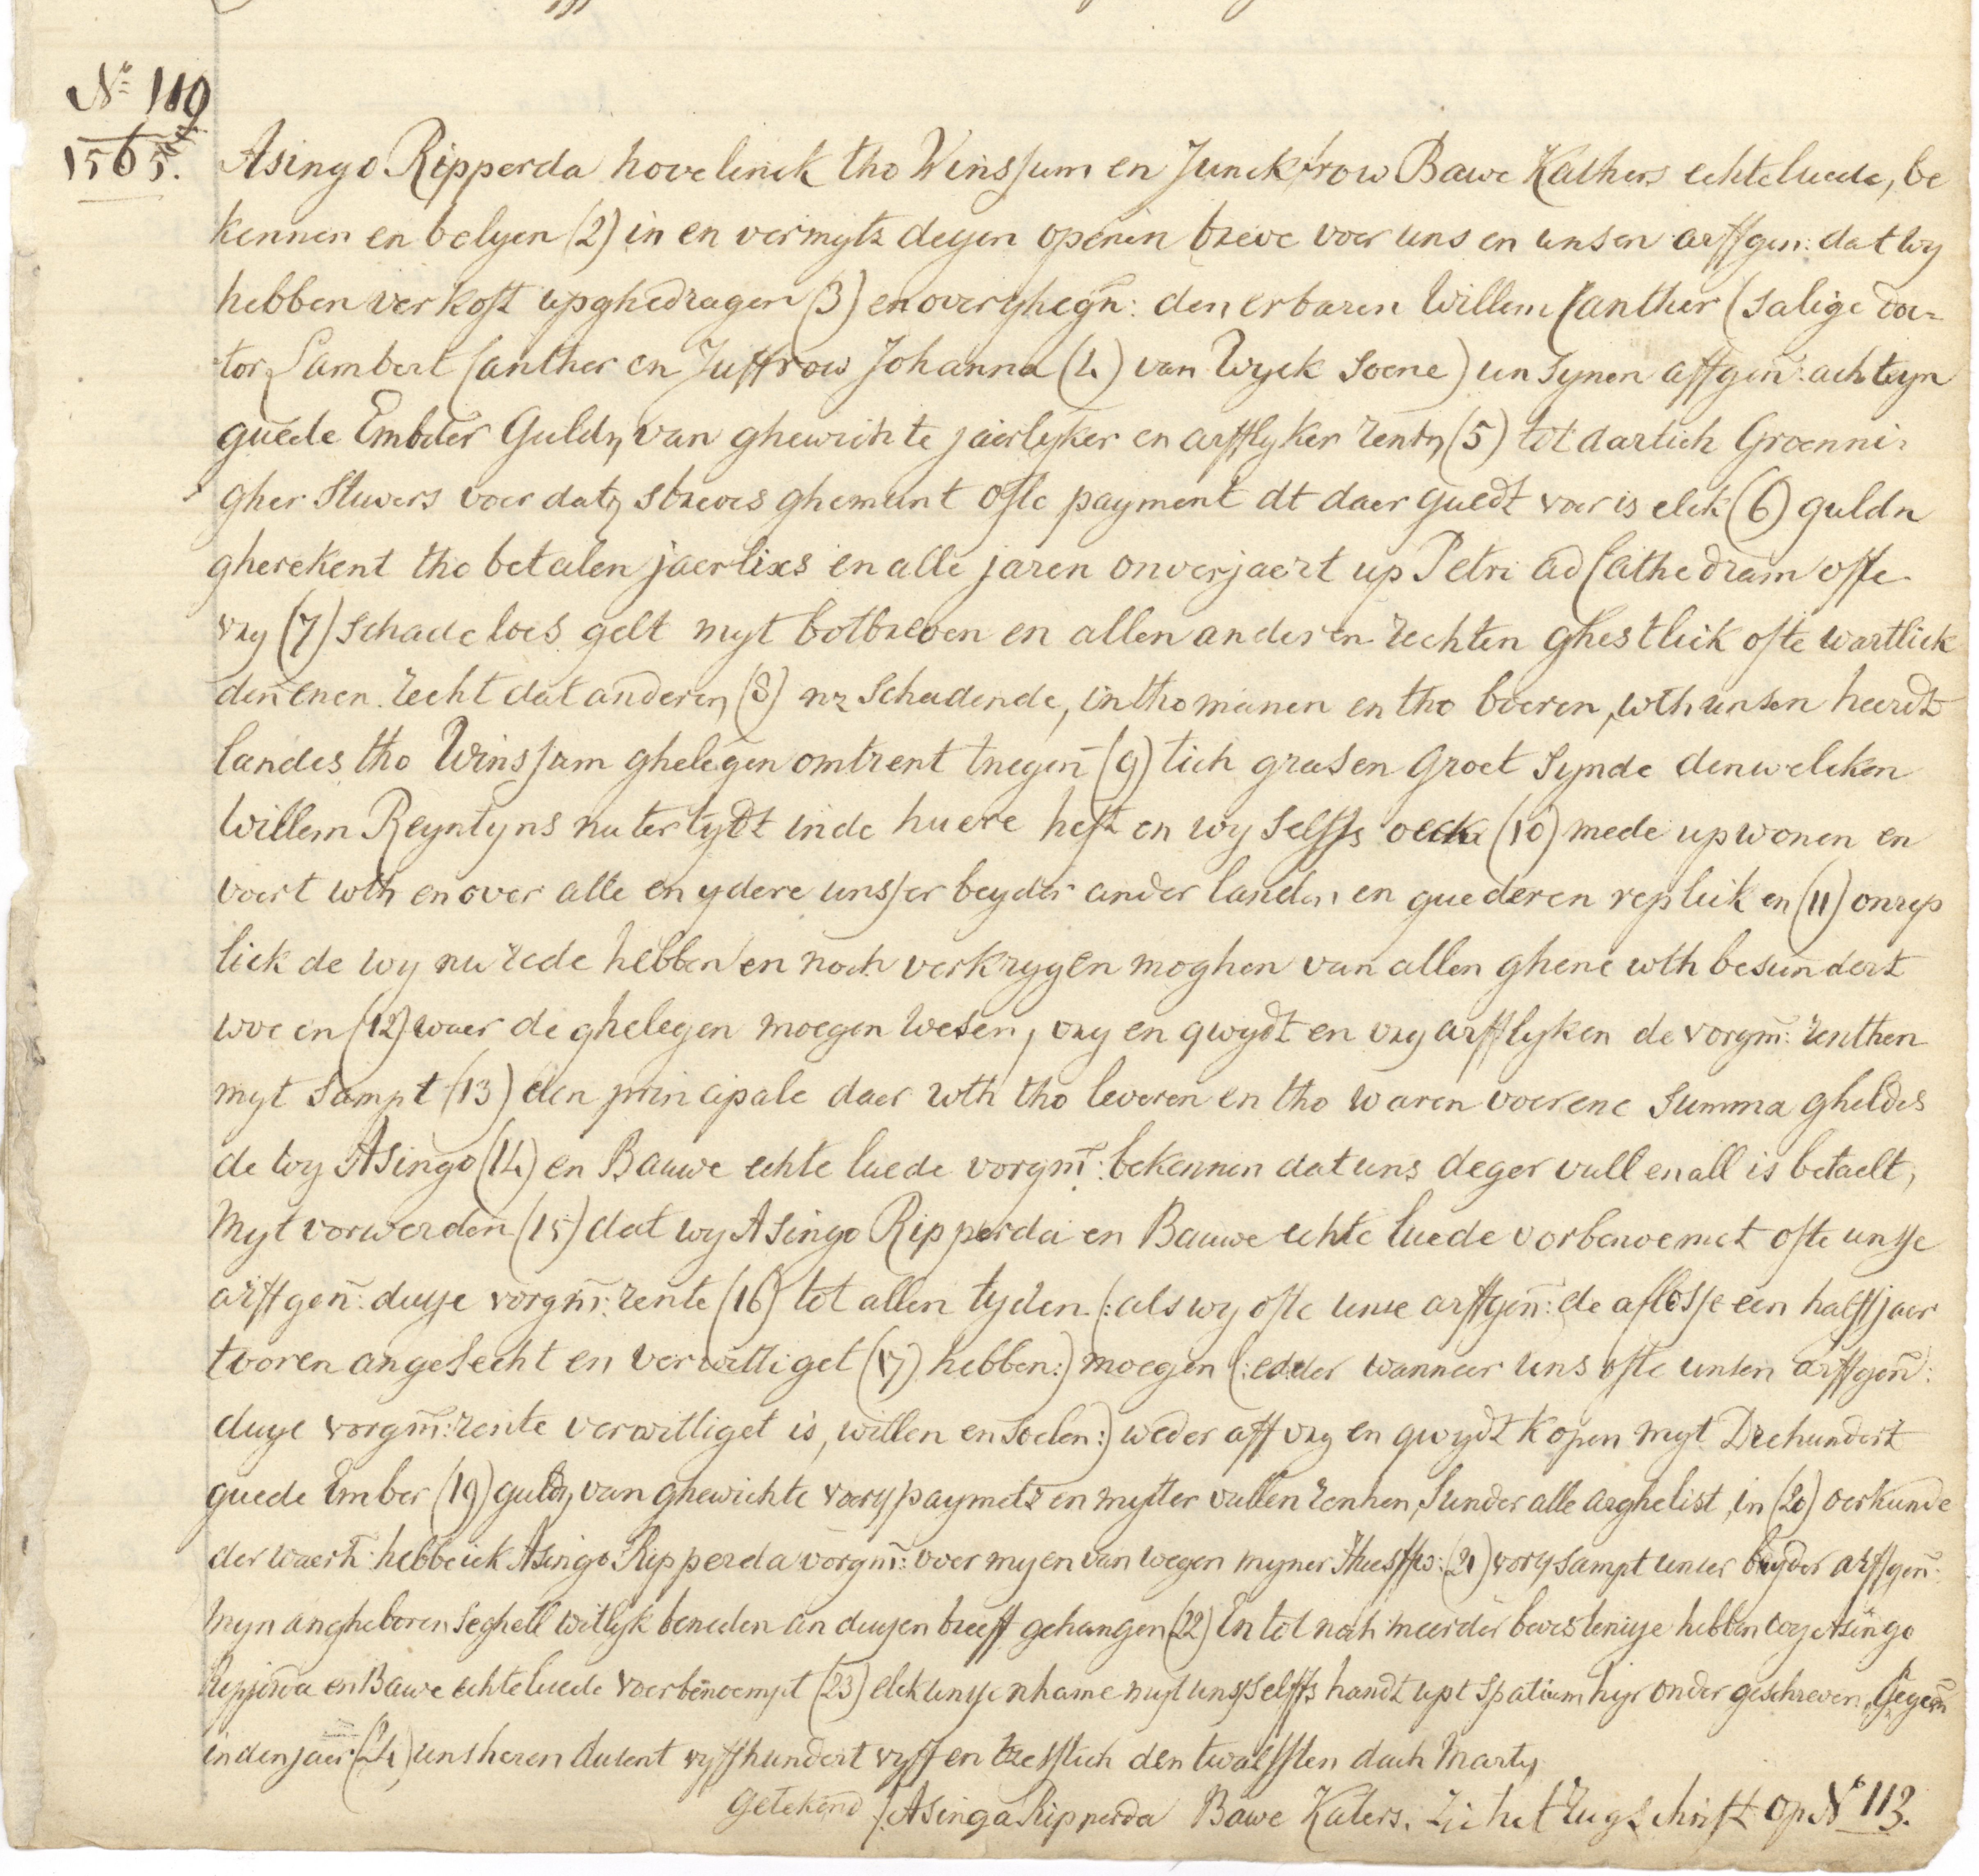 No 110
1565.
Asingo Ripperda hovelinck tho Winssum en Junckfrow Bawe Kathers echteluede, be
kennen en belyen (2) in en vermytz deyen openen breve voer uns en unsen arffgen: dat wy
hebben verkoft upghedragen (3) en overghegn: den erbaren Willem Canther (salige doc=
tor Lambert Canther en Juffrow Johanna (4) van Wyck soene) un synen affgen: achteyn
guede Embder Guldn van ghewichte jaerlyker en arfflyker rentn (5) tot dartich Groenni=
gher Stuvers voer datn breves ghemunt ofte payment dt daer guedt voer is elck (6) guldn
gherekent tho betalen jaerlixs en alle jaren onverjaert up Petri ad Cathedram offe
vry (7) schadeloes gelt myt botbreven en allen anderen rechten ghestlick ofte wartlick
den enen recht dat anderen (8) nz schadende, intho manen en tho boeren, wth unsen heerdt
landes tho Winssum ghelegen omtrent tnegen (9) tich grasen groet synde denwelcken
Willem Reyntyns nu tertydt inde huere heft en wy selffs oeck (10) mede up wonen en
voert wth en over alle en ydere unsser beyder ander landen en guederen replick en (11) onrep
lick de wy nu rede hebben en noch verkrygen moghen van allen ghene wth besundert
woe en (12) waer de ghelegen moegen wesen, vry en qwydt en vry arfflyken de vorgm: renthen
myt sampt (13) den principale daer wth tho leveren en tho waren voer ene summa gheldes
de wy Asingo (14) en Bauwe echte luede vorgm: bekennen dat uns deger vull en all is betaelt,
Myt vorwerden (15) dat wy Asingo Ripperda en Bauwe echte luede vorbenoemet ofte unsse
arffgen: dusse vorgm: rente (16) tot allen tyden (: als wy ofte unse arffgen: de aflosse een halff jaer
tvoren angesecht en verwittiget (17) hebben:) moegen (: edder wanneer uns ofte unsen arffgen:
duye vorgm: rente verwittiget is, willen en soelen:) weder aff vry en qwydt kopen myt Drehundert
guede Ember (19) guldn van ghewichte voers paymetz en mytter vullen renhen, sunder alle arghelist, in (20) oerkunde
der waerh: hebbe ick Asingo Ripperda vorgm: voer my en van wegen myner Huesffw: (21) vors sampt unser beyder arffgen:
Myn angheboren seghell witlyk beneden an duyen breeff gehangen (22) En tot noch meerder bevesteniye hebben wy Asingo
Ripperda en Bawe echteluede voerbenoempt (23) elck unse nhame myt uns selffs handt upt spatium hyr onder geschreven. Gegeven
in den jaer (24) uns heren dusent vyffhundert vyff en tzesstich den twalfften dach Marty
Getekend /: Asinga Ripperda Bawe Katers. Zie het rugschrift op No 113.